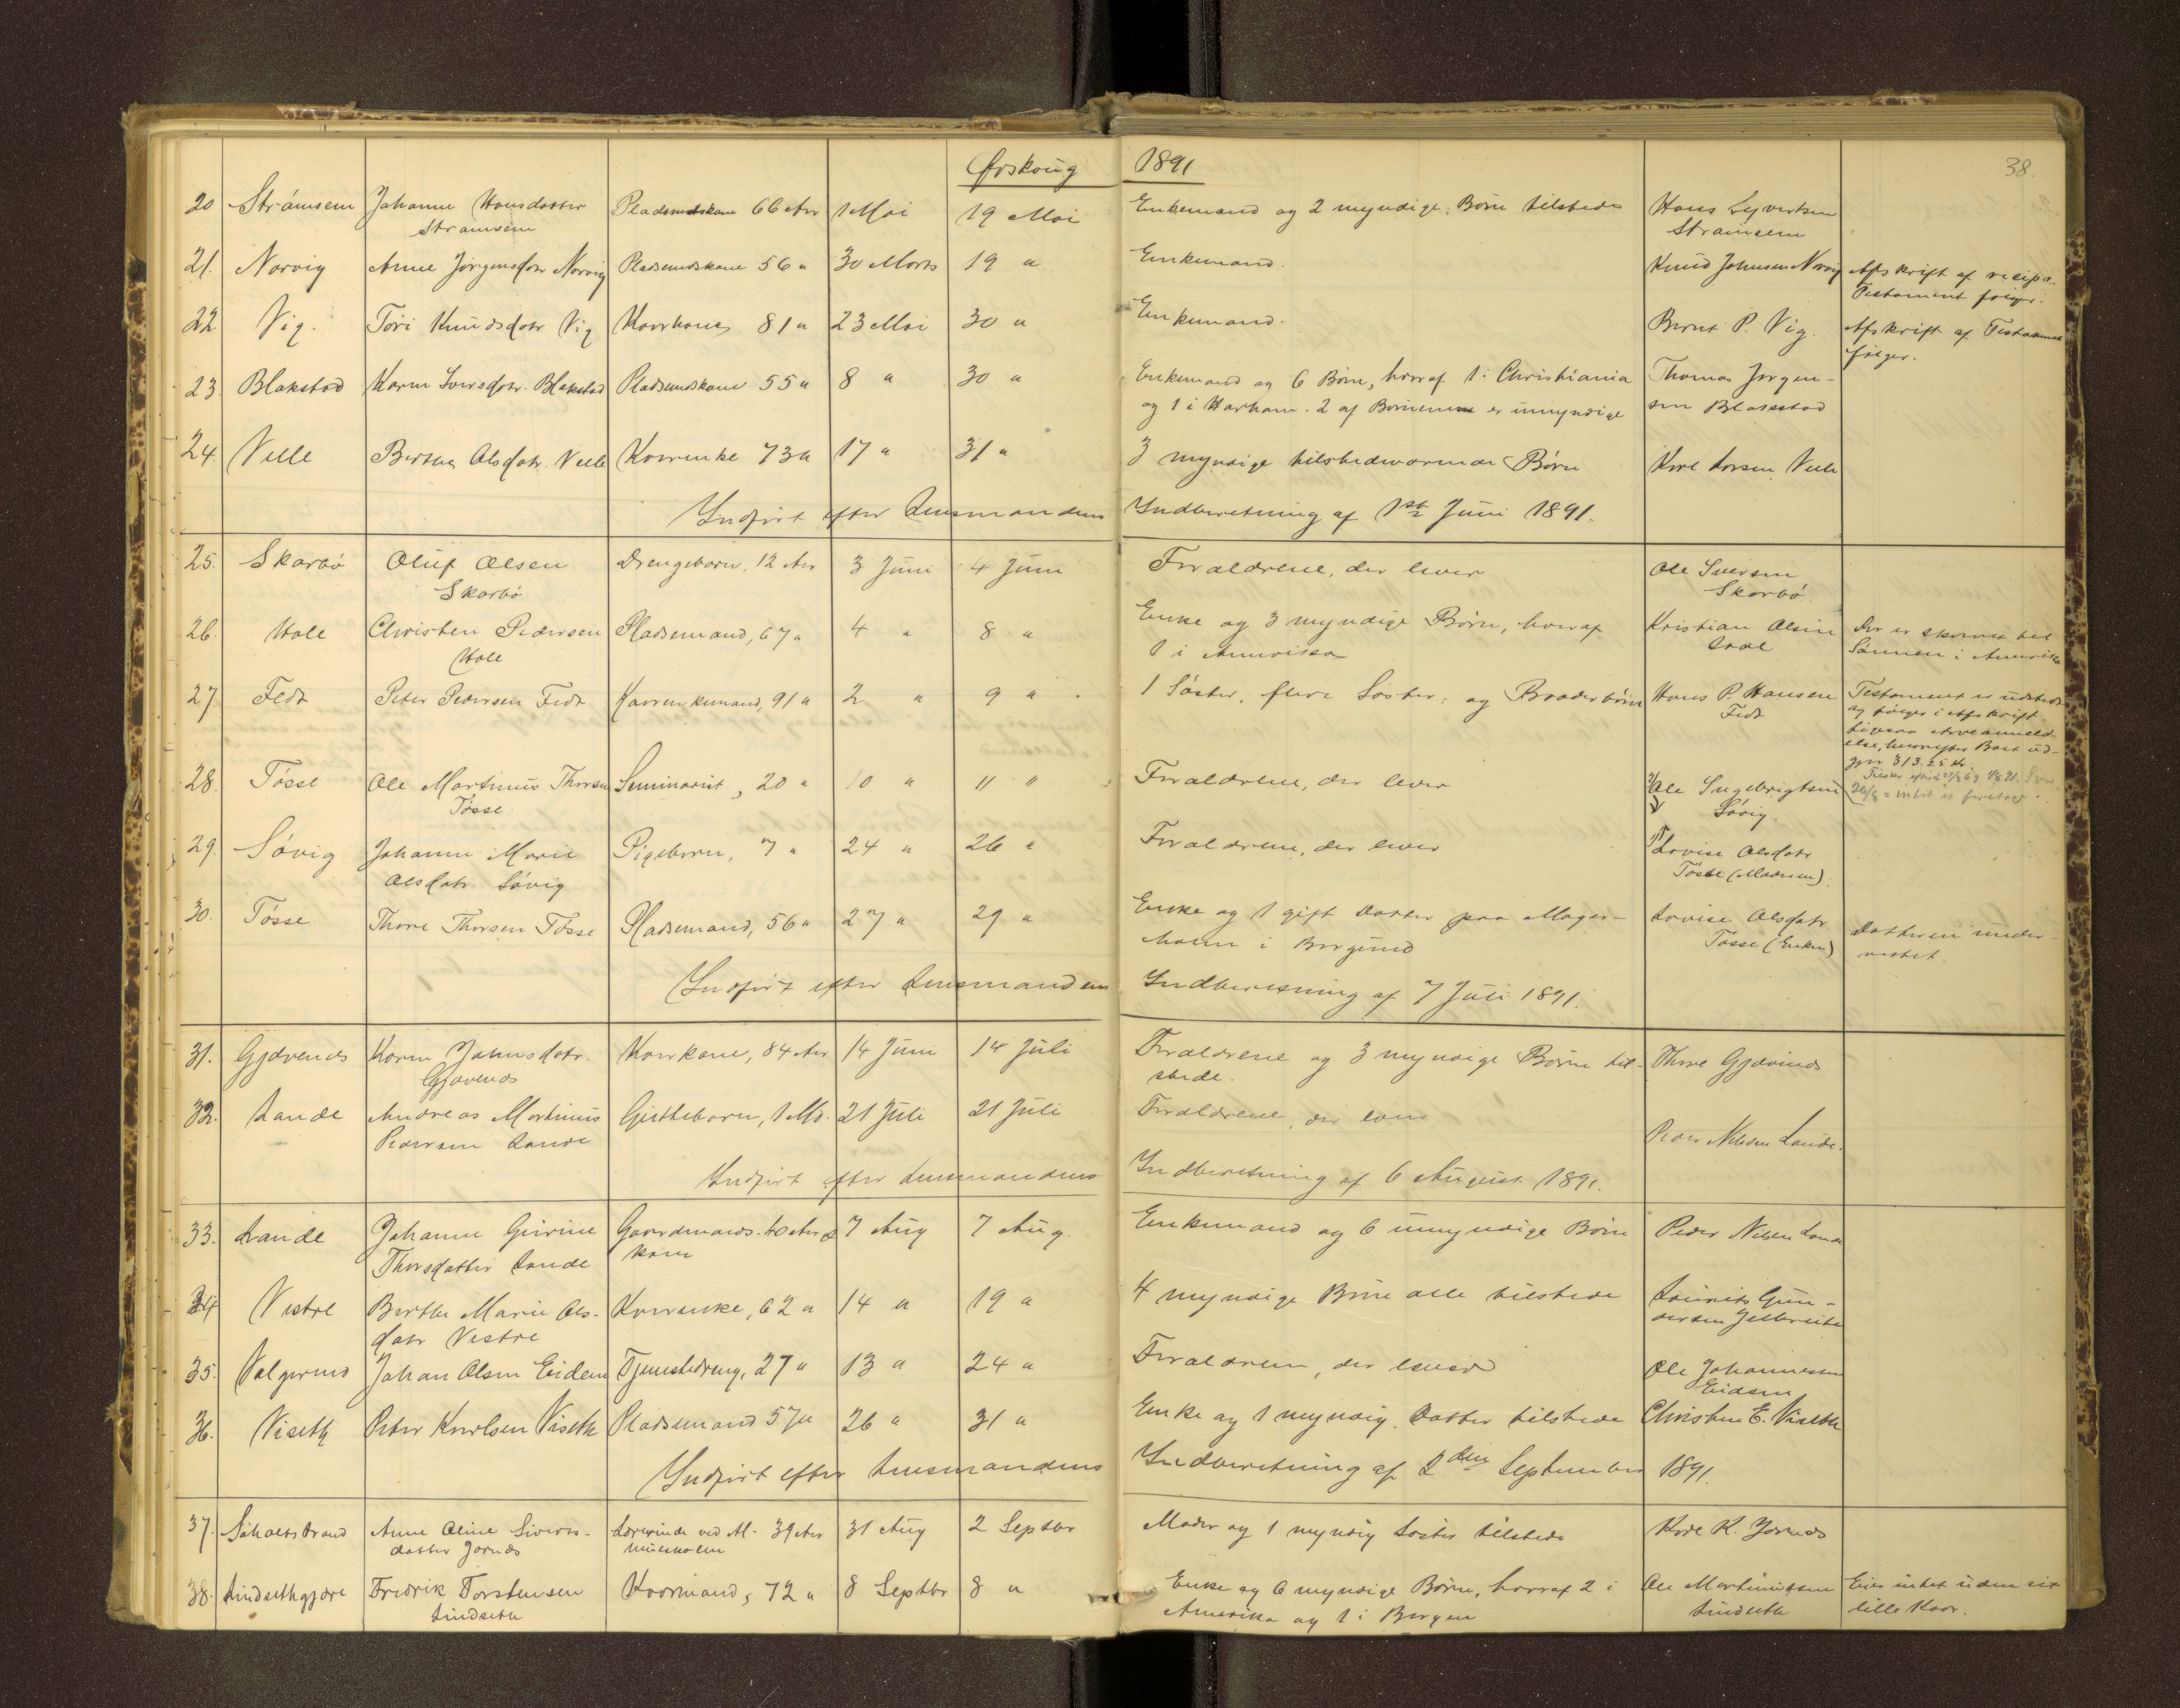 Ørskoug 1891
38.
20 Strømsem Johanne Hansdatter Pladsmdskone 66 Aar 1 Mai 19 Mai Enkemand og 2 myndige Børn tilstede Hans Syvertsen
Strømsem Strømsem
21. Norvig Anne Jørgensdatr Norvig Pladsmdskone 56 " 30 Marts 19 " Enkemand. Knud Johnsen Norvig Afskrift af recipr.
Testament følger.
22 Vig. Tøri Knudsdatr Vig Kaarkone 81 " 23 Mai 30 " Enkemand. Bernt P. Vig. Afskrift af Testament
følger.
23 Blakstad Karen Iversdatr. Blakstad Pladsmdskone 55 " 8 " 30 " Enkemand og 6 Børn, hvoraf 1 i Christiania Thomas Jørgen-
og 1 i Harham. 2 af Børnene er umyndige sen Blakstad
24 Velle Berthe Olsdatr. Velle Kaarenke 73 " 17 " 31 " 3 myndige tilstedeværende Børn Karl Larsen Velle
Indført efter Lensmandens Indberetning af 1ste Juni 1891.
25. Skarbø Oluf Olsen Drengebarn, 12 Aar 3 Juni 4 Juni Forældrene, der lever Ole Iversen
Skarbø Skarbø.
26. Hole Christen Pedersen Pladsemand, 67 " 4 " 8 " Enke og 3 myndige Børn, hvoraf Kristian Olsen Der er skrevet til
Hole 1 i Amerika Sønnen i Amerika
27 Fedt Peter Pedersen Fedt Kaarenkemand, 91 " 2 " 9 " 1 Søster, flere Søster- og Broderbørn Hans P. Hansen Testament er udstedt
Fedt og følger i Afskrift
Ligesaa Arveanmeld-
else, hvorefter Boet ud-
gjør 313.25 Kr
28. Tøsse Ole Martinus Thorsen Seminarist, 20 " 10 " 11 " Forældrene, der lever Ole Ingebrigtsen
Tøsse Søvig.
29. Søvig Johanne Marie Pigebarn, 7 " 24 " 26 " Forældrene, der lever Lovise Olsdatr
Olsdatr Søvig Tøsse (Moderen).
30. Tøsse Thore Thorsen Tøsse Pladsemand, 56 " 27 " 29 " Enke og 1 gift Datter paa Mager- Lovise Olsdatr Datteren under-
holm i Borgund Tøsse (Enken) rettet.
Indført efter Lensmandens Indberetning af 7 Juli 1891.
31. Gjævenes Karen Johnsdatr. Kaarkone, 84 Aar 14 Juni 14 Juli Forældrene og 3 myndige Børn til- Thore Gjævenes
Gjævenes stede.
32. Lande Andreas Martinus Guttebarn, 1 Md. 21 Juli 21 Juli Forældrene, der lever
Pedersen Lande Peder Nilsen Lande.
Indført efter Lensmandens Indberetning af 6 August 1891.
33. Lande Johanne Gurine Gaardmands- 40 Aar 7 Aug 7 Aug. Enkemand og 6 umyndige Børn Peder Nilsen Lande
Thorsdatter Lande kone
34 Vestre Berthe Marie Ols- Kaarenke, 62 " 14 " 19 " 4 myndige Børn alle tilstede Laurits Gun-
datr Vestre dersen
35. Valgermo Johan Olsen Eidem Tjenestedreng, 27 " 13 " 24 " Forældrene, der lever Ole Johannesen
Eidem
36. Viseth Peter Karlsen Viseth Pladsemand 57 " 26 " 31 " Enke og 1 myndig Datter tilstede Christen E. Viseth
Indført efter Lensmandens Indberetning af 2den September 1891.
37. Sjøholtstrand Anne Oline Siverts- Lærerinde ved Al- 39 Aar 31 Aug 2 Septbr Moder og 1 myndig Søster tilstede Karl K. Jarnes
datter Jarnes mueskolen
38. Lindsethgjære Fredrik Torstensen Kaarmand, 72 " 8 Septbr 8 " Enke og 6 myndige Børn, hvoraf 2 i Ole Martinussen Eier intet uden sit
Lindseth Amerika og 1 i Bergen Lindseth lille Kaar.